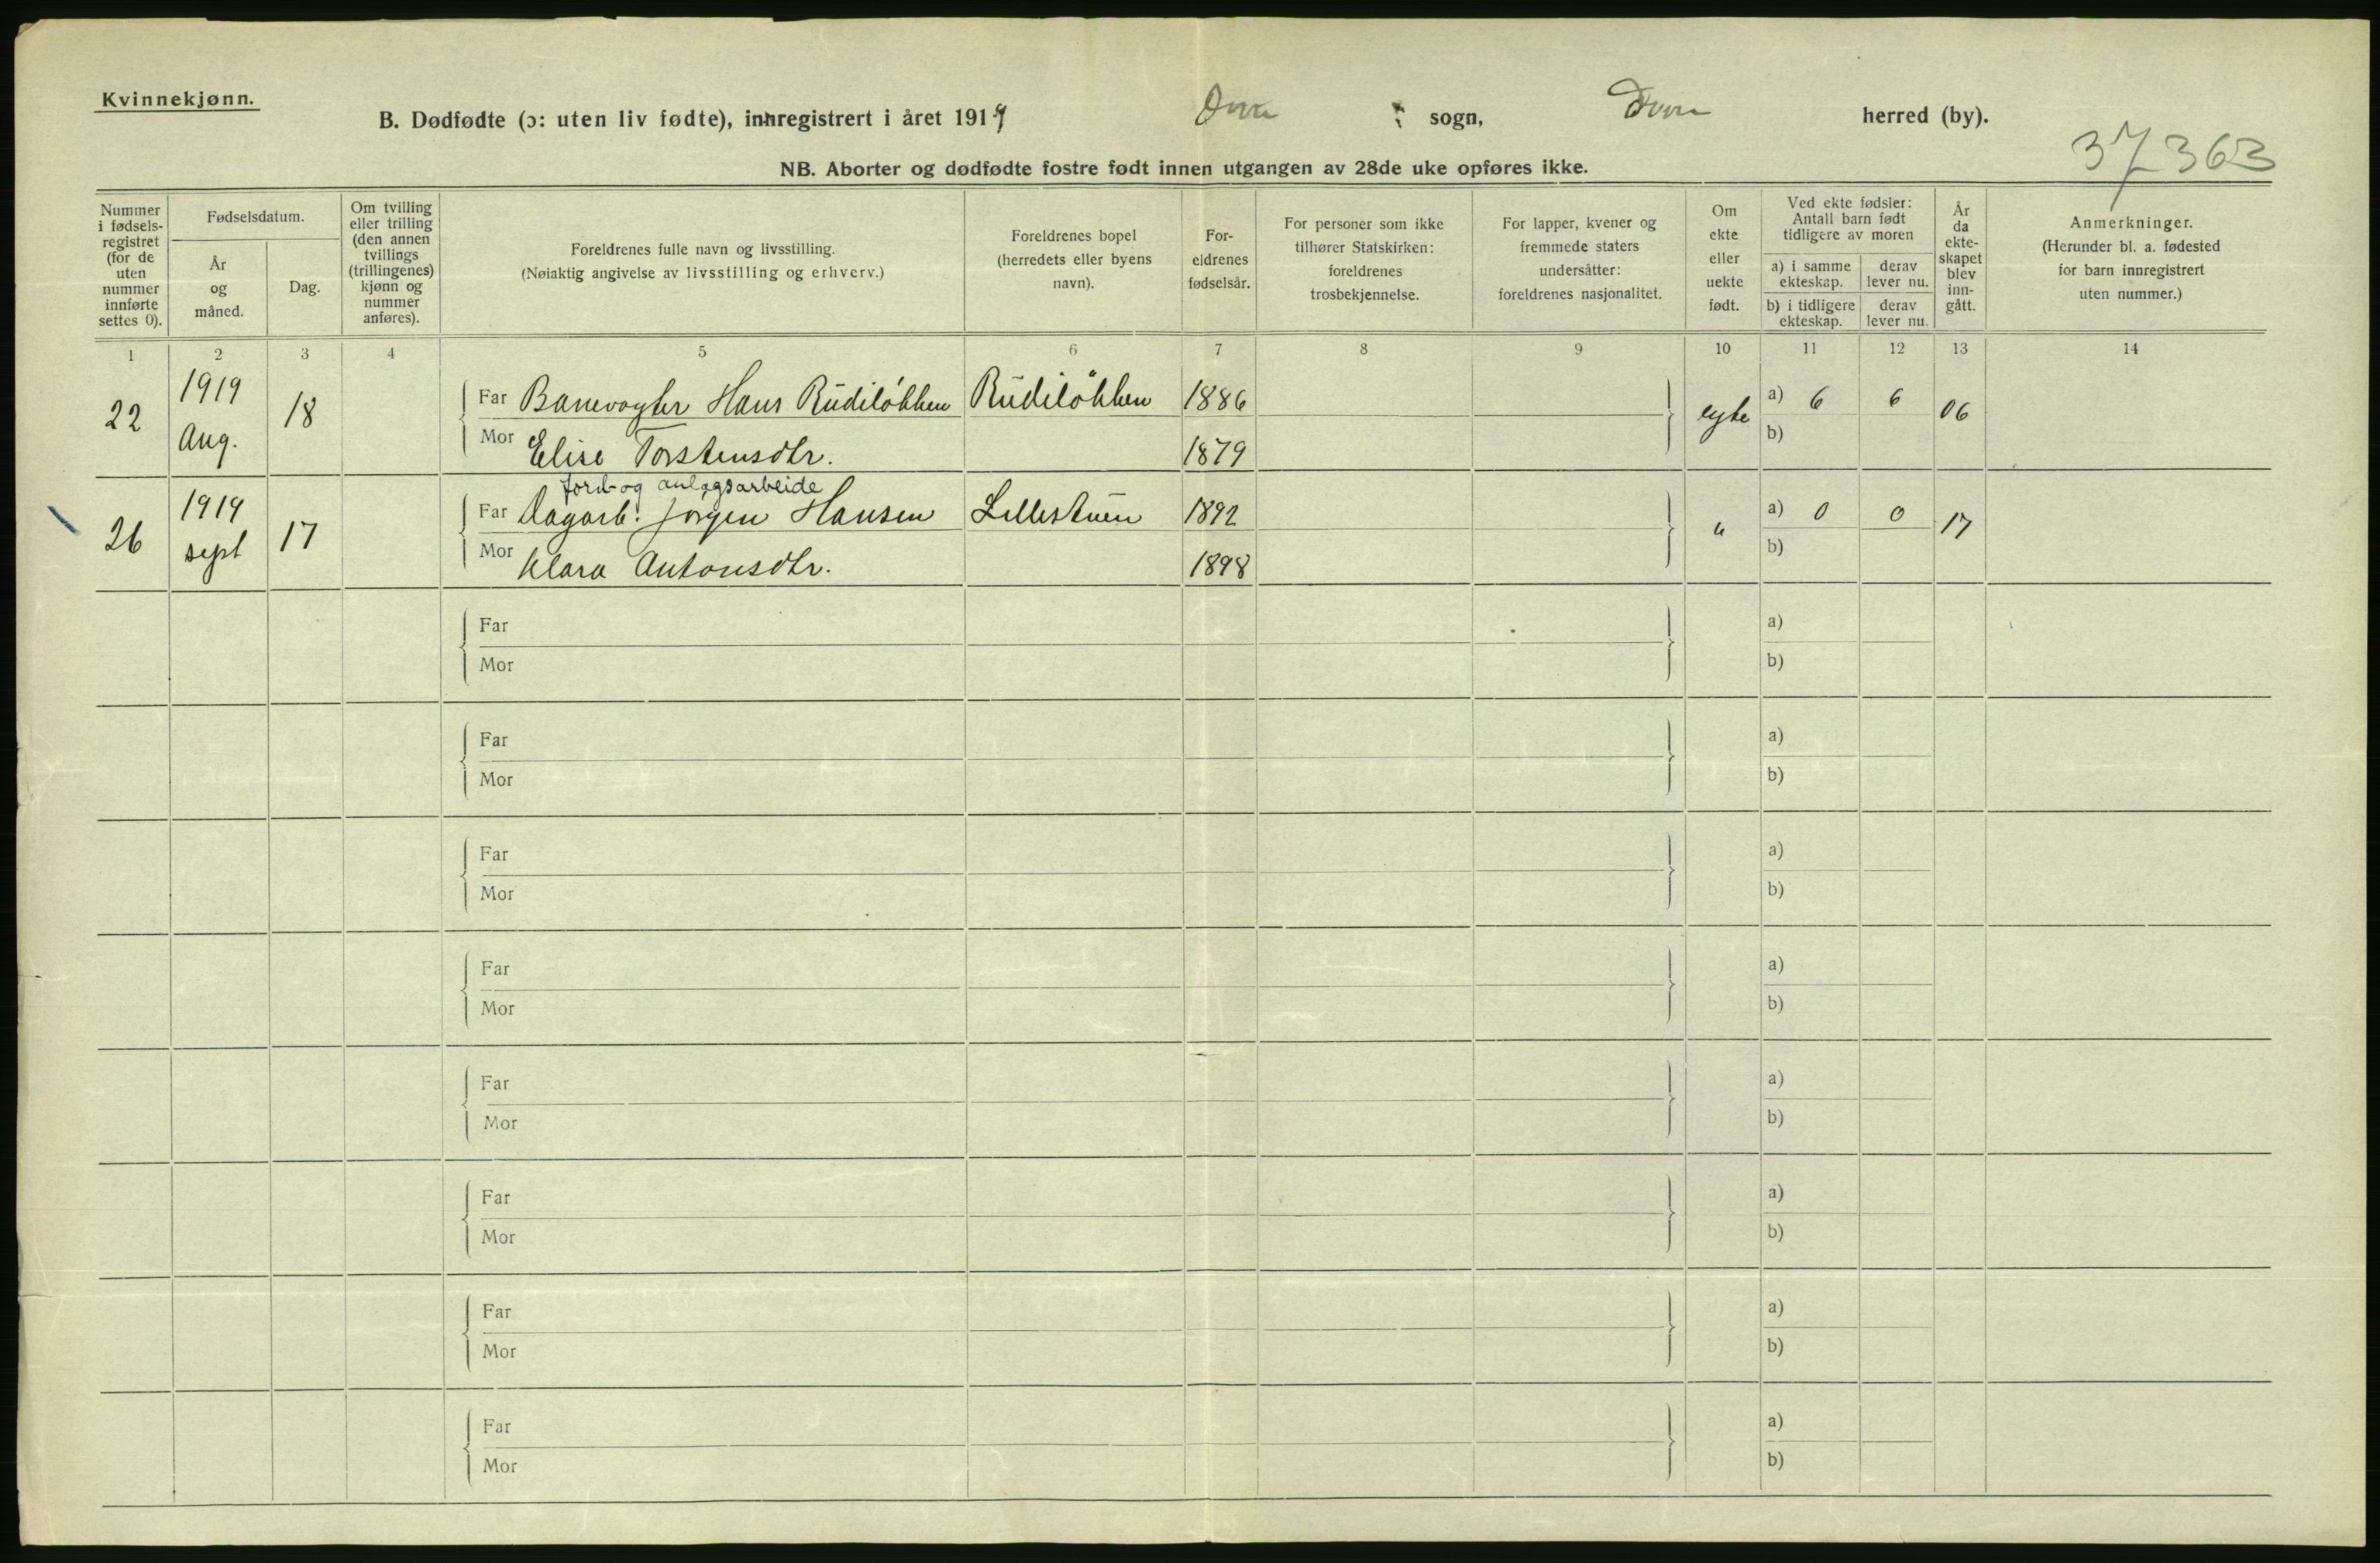 Kvinnekjønn.
B. Dødfødte (ɔ: uten liv fødte), innregistrert i året 1919 Dovre sogn, Dovre herred (by).
37363
NB. Aborter og dødfødte fostre født innen utgangen av 28de uke opføres ikke.
Nummer i fødsels-registret (for de uten nummer innførte settes 0).
Fødselsdatum.
År og måned.
Dag.
Om tvilling eller trilling (den annen tvillings (trillingenes) kjønn og nummer anføres).
Foreldrenes fulle navn og livsstilling.
(Nøiaktig angivelse av livsstilling og erhverv.)
Foreldrenes bopel (herredets eller byens navn).
For-eldrenes fødselsår.
For personer som ikke tilhører Statskirken: foreldrenes trosbekjennelse.
For lapper, kvener og fremmede staters undersåtter: foreldrenes nasjonalitet.
Om ekte eller uekte født.
Ved ekte fødsler: Antall barn født tidligere av moren
a) i samme ekteskap.
derav lever nu.
b) i tidligere ekteskap.
derav lever nu.
År da ekte-skapet blev inn-gått.
Anmerkninger.
(Herunder bl. a. fødested for barn innregistrert uten nummer.)
1 2 3 4 5 6 7 8 9 10 11 12 13 14
22 1919 Aug. 18 Far Banevogter Hans Rudiløkken Rudiløkken 1886 egte a) 6 6 06
Mor Elise Torstensdtr. 1879 b)
Jord- og anlægsarbeide
26 1919 sept 17 Far Dagarb. Jørgen Hansen Lillestuen 1892 " a) 0 0 17
Mor Klara Antonsdtr. 1898 b)
Far a)
Mor b)
Far a)
Mor b)
Far a)
Mor b)
Far a)
Mor b)
Far a)
Mor b)
Far a)
Mor b)
Far a)
Mor b)
Far a)
Mor b)